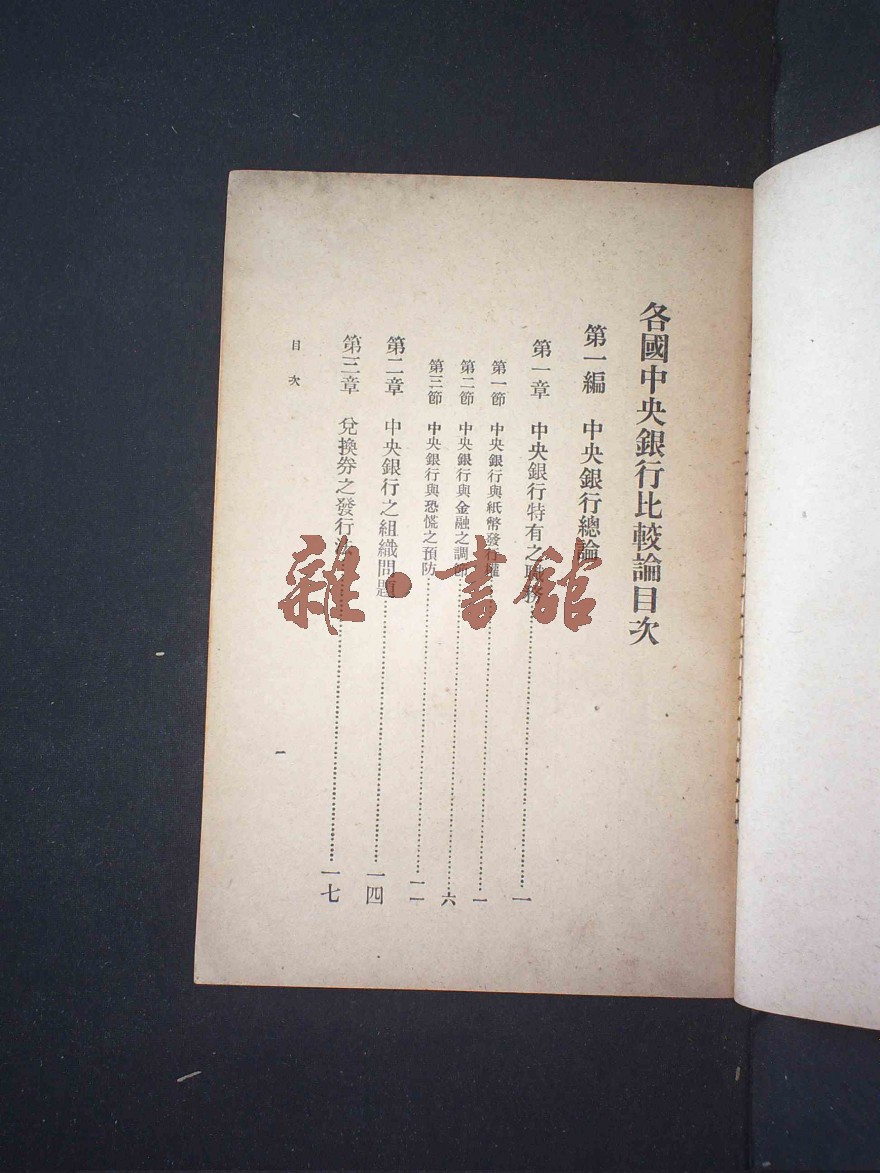 各國中央銀行比較論目次
第一編 中央銀行總論
第一章 中央銀行特有之職務……一
第一節 中央銀行與紙幣發行權……一
第二節 中央銀行與金融之調節……六
第三節 中央銀行與恐慌之預防……一一
第二章 中央銀行之組織問題……一四
第三章 兌換券之發行法……一七
目次
一
雜·書館